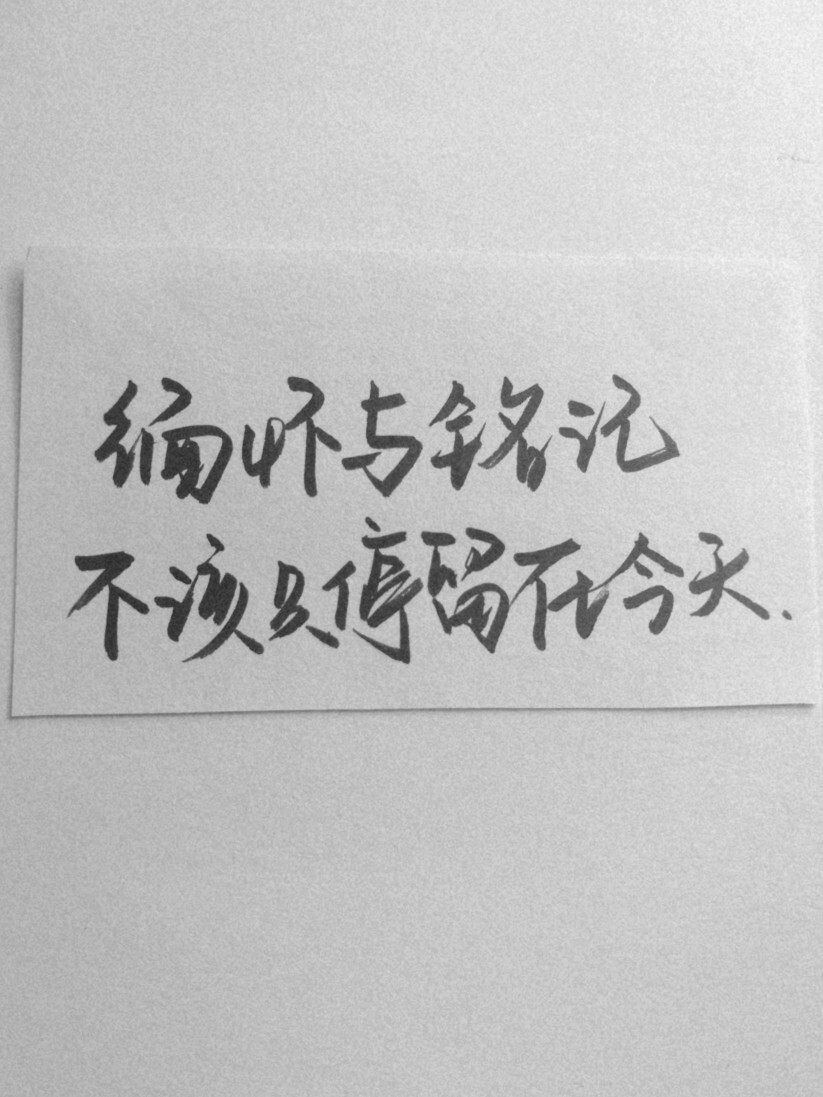 缅怀与铭记
不该只停留在今天.